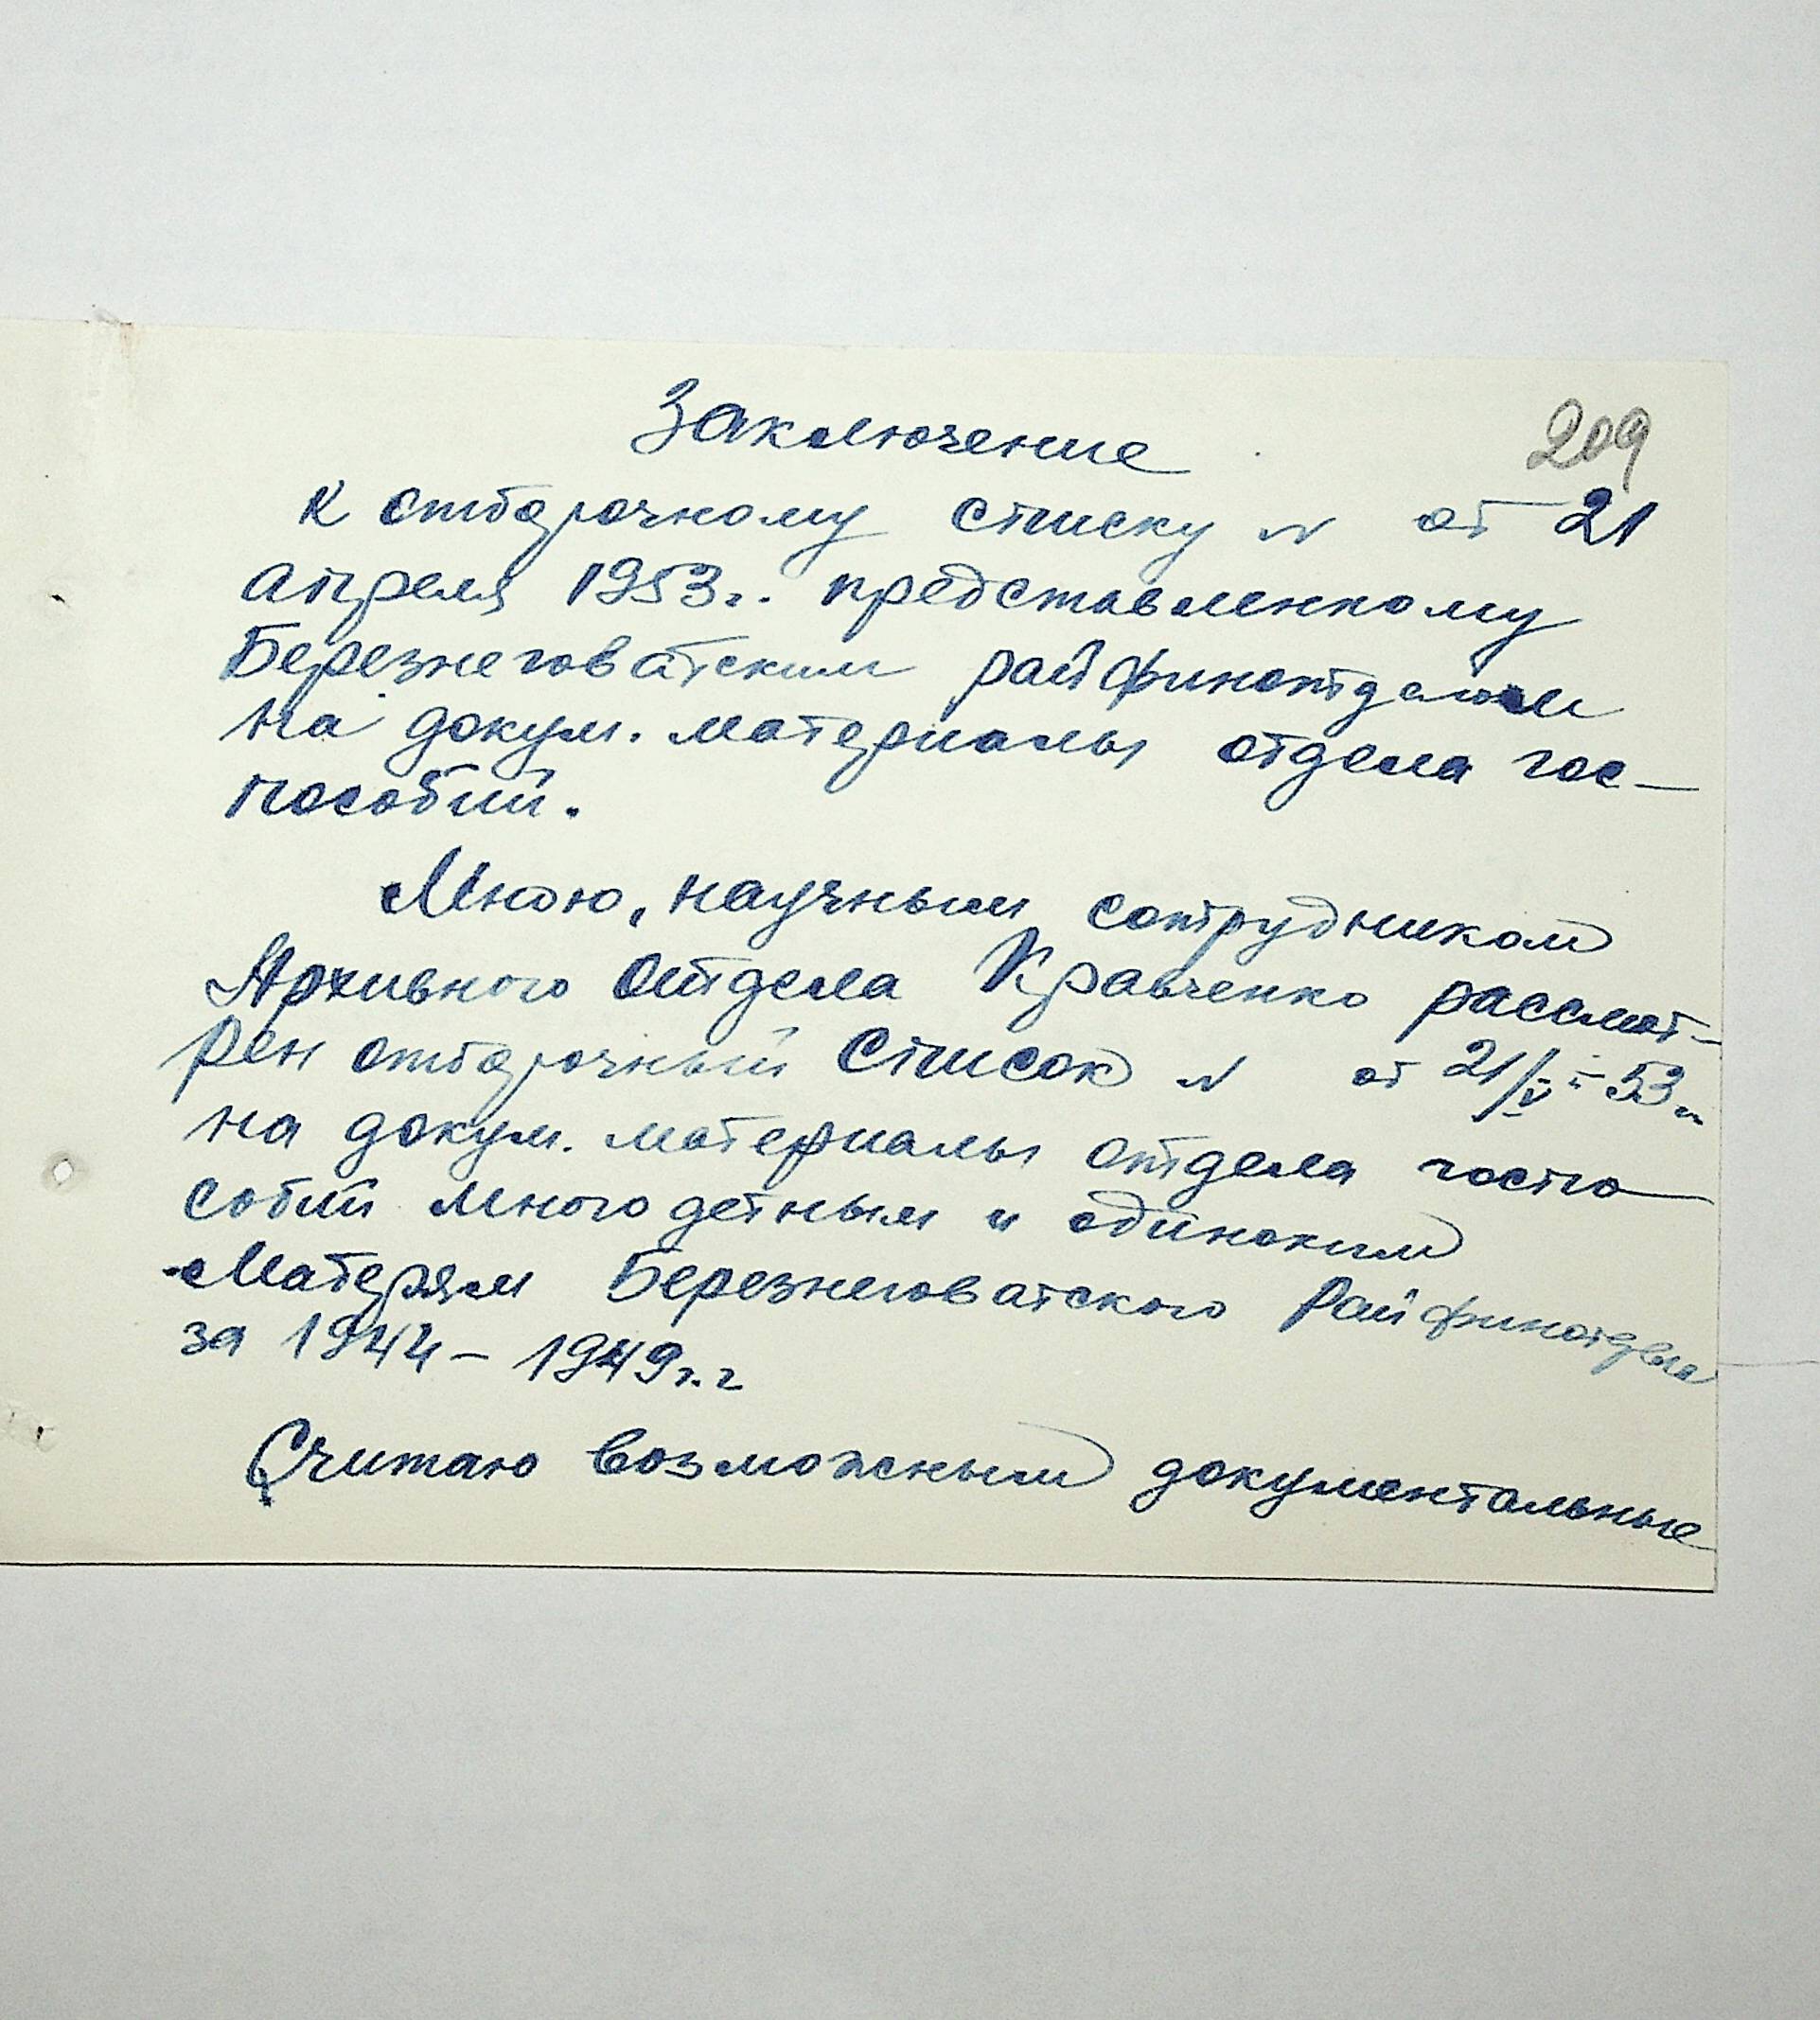 Заключение
209
к отборочному списку N от 21
апреля 1953г. представленному
Березнеговатским райфинотделом
на докум. материалы отдела гос-
пособий.
Мною, научным сотрудником
Архивного отдела Кравченко рассмот-
рен отборочный список N от 21/IV-53г.
на докум. материалы отдела госпо-
собий многодетным и одиноким
матерям Березнеговатского Райфинотдела
за 1944-1949г.г
Считаю возможным документальные